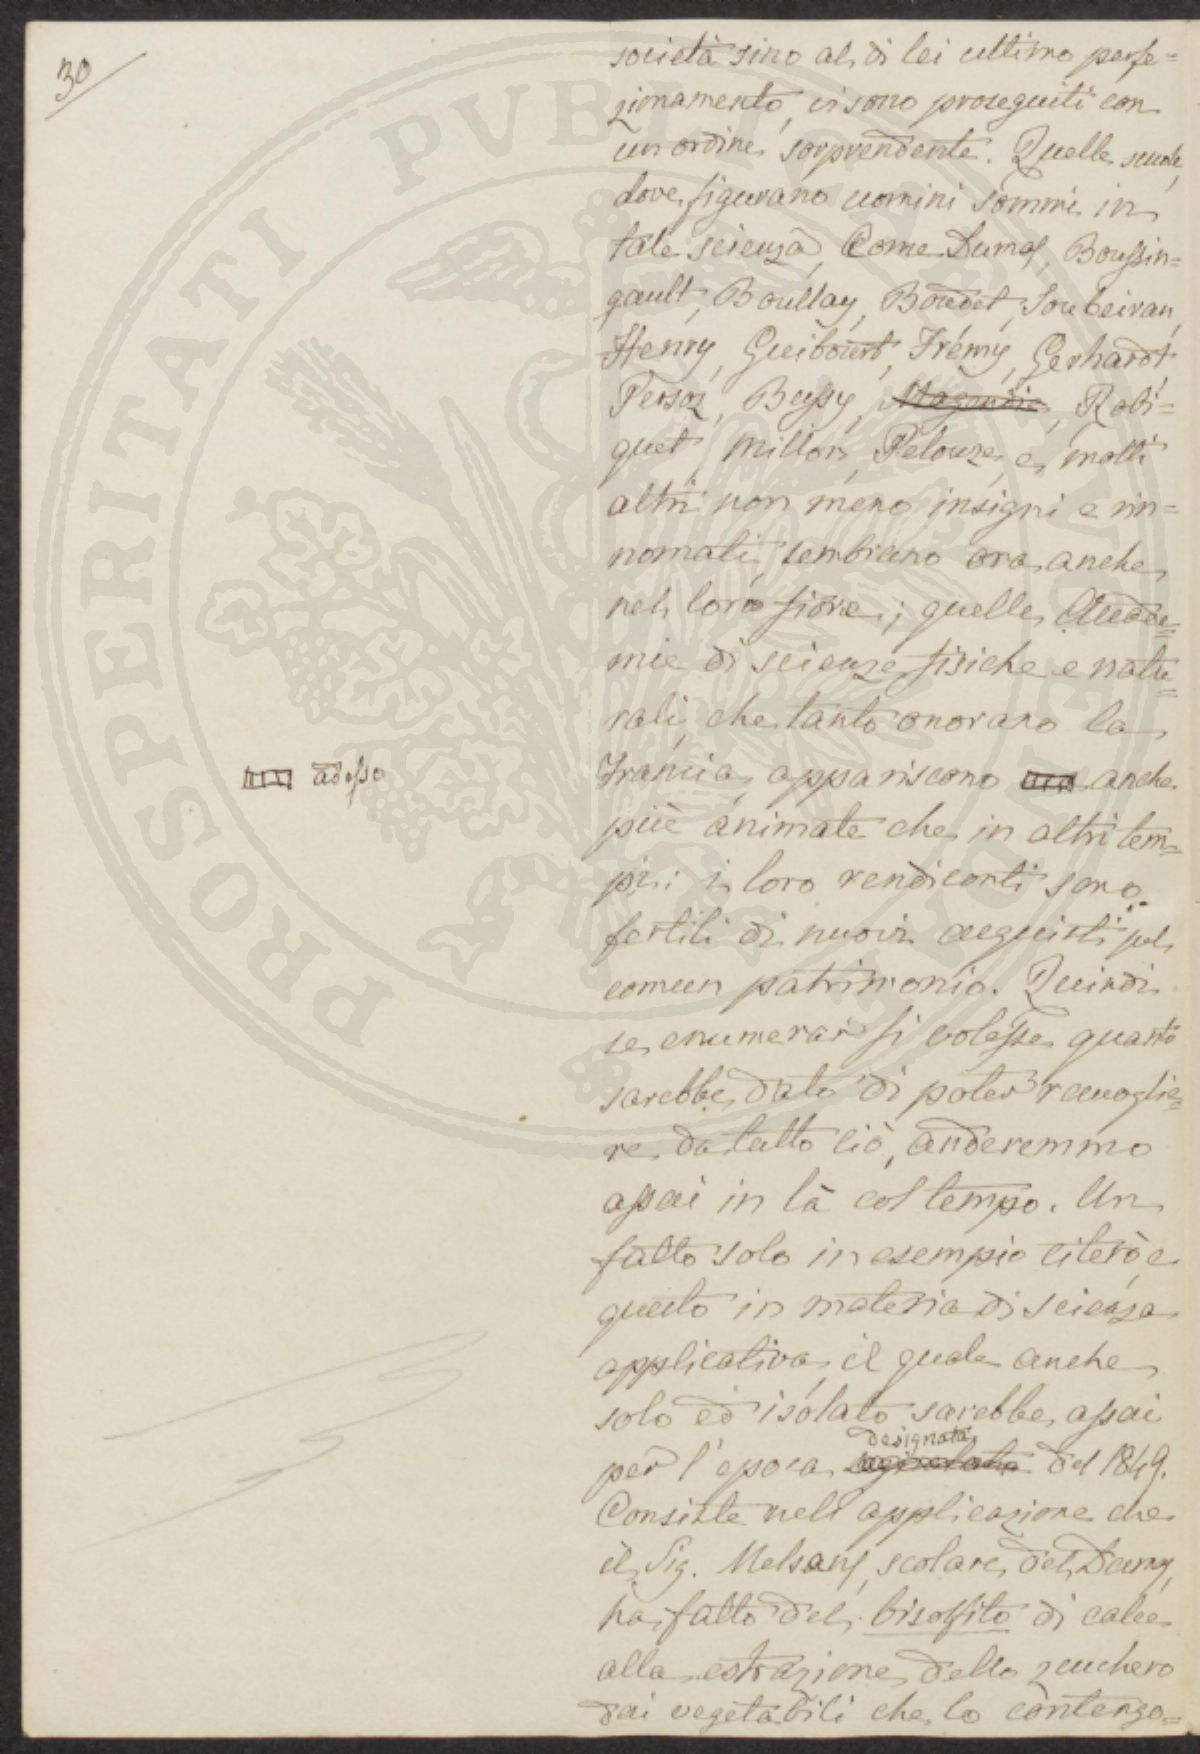 30
società sino al di lei ultimo perfe=
zionamento, vi sono proseguiti con
un ordine sorprendente. Quelle scuole,
dove figurano uomini sommi in
tale scienza, Come Dumas, Boussin=
gault, Boullay, Boudet, Soubeiran,
Henry, Guibourt, Frémy, Gerhardt
Persoz, Bussy, Magendie, Robi=
quet, Millon, Pelouze, e molti
altri non meno insigni e rin=
nomati, sembrano ora anche
nel loro fiore; quelle Accade=
mie di scienze fisiche e natu=
rali, che tanto onorano la
Francia, appariscono ora anche
ora adesso
più animate che in altri tem=
pi: i loro rendiconti sono
fertili di nuovi acquisti pel
comun patrimonio. Quindi
se enumerar si volesse quanto
sarebbe dato di poter raccoglie=
re da tutto ciò, anderemmo
assai in là col tempo. Un
fatto solo in esempio citerò, e
questo in materia di scienza
applicativa, il quale anche
solo ed isolato sarebbe assai
designata
per l'epoca del 1849.
Consiste nell'applicazione che
il Sig. Melsens, scolare del Dumas,
ha fatto del bisolfito di calce
alla estrazione dello zucchero
dai vegetabili che lo contengo=
PROSPERITATI PUBLICAE